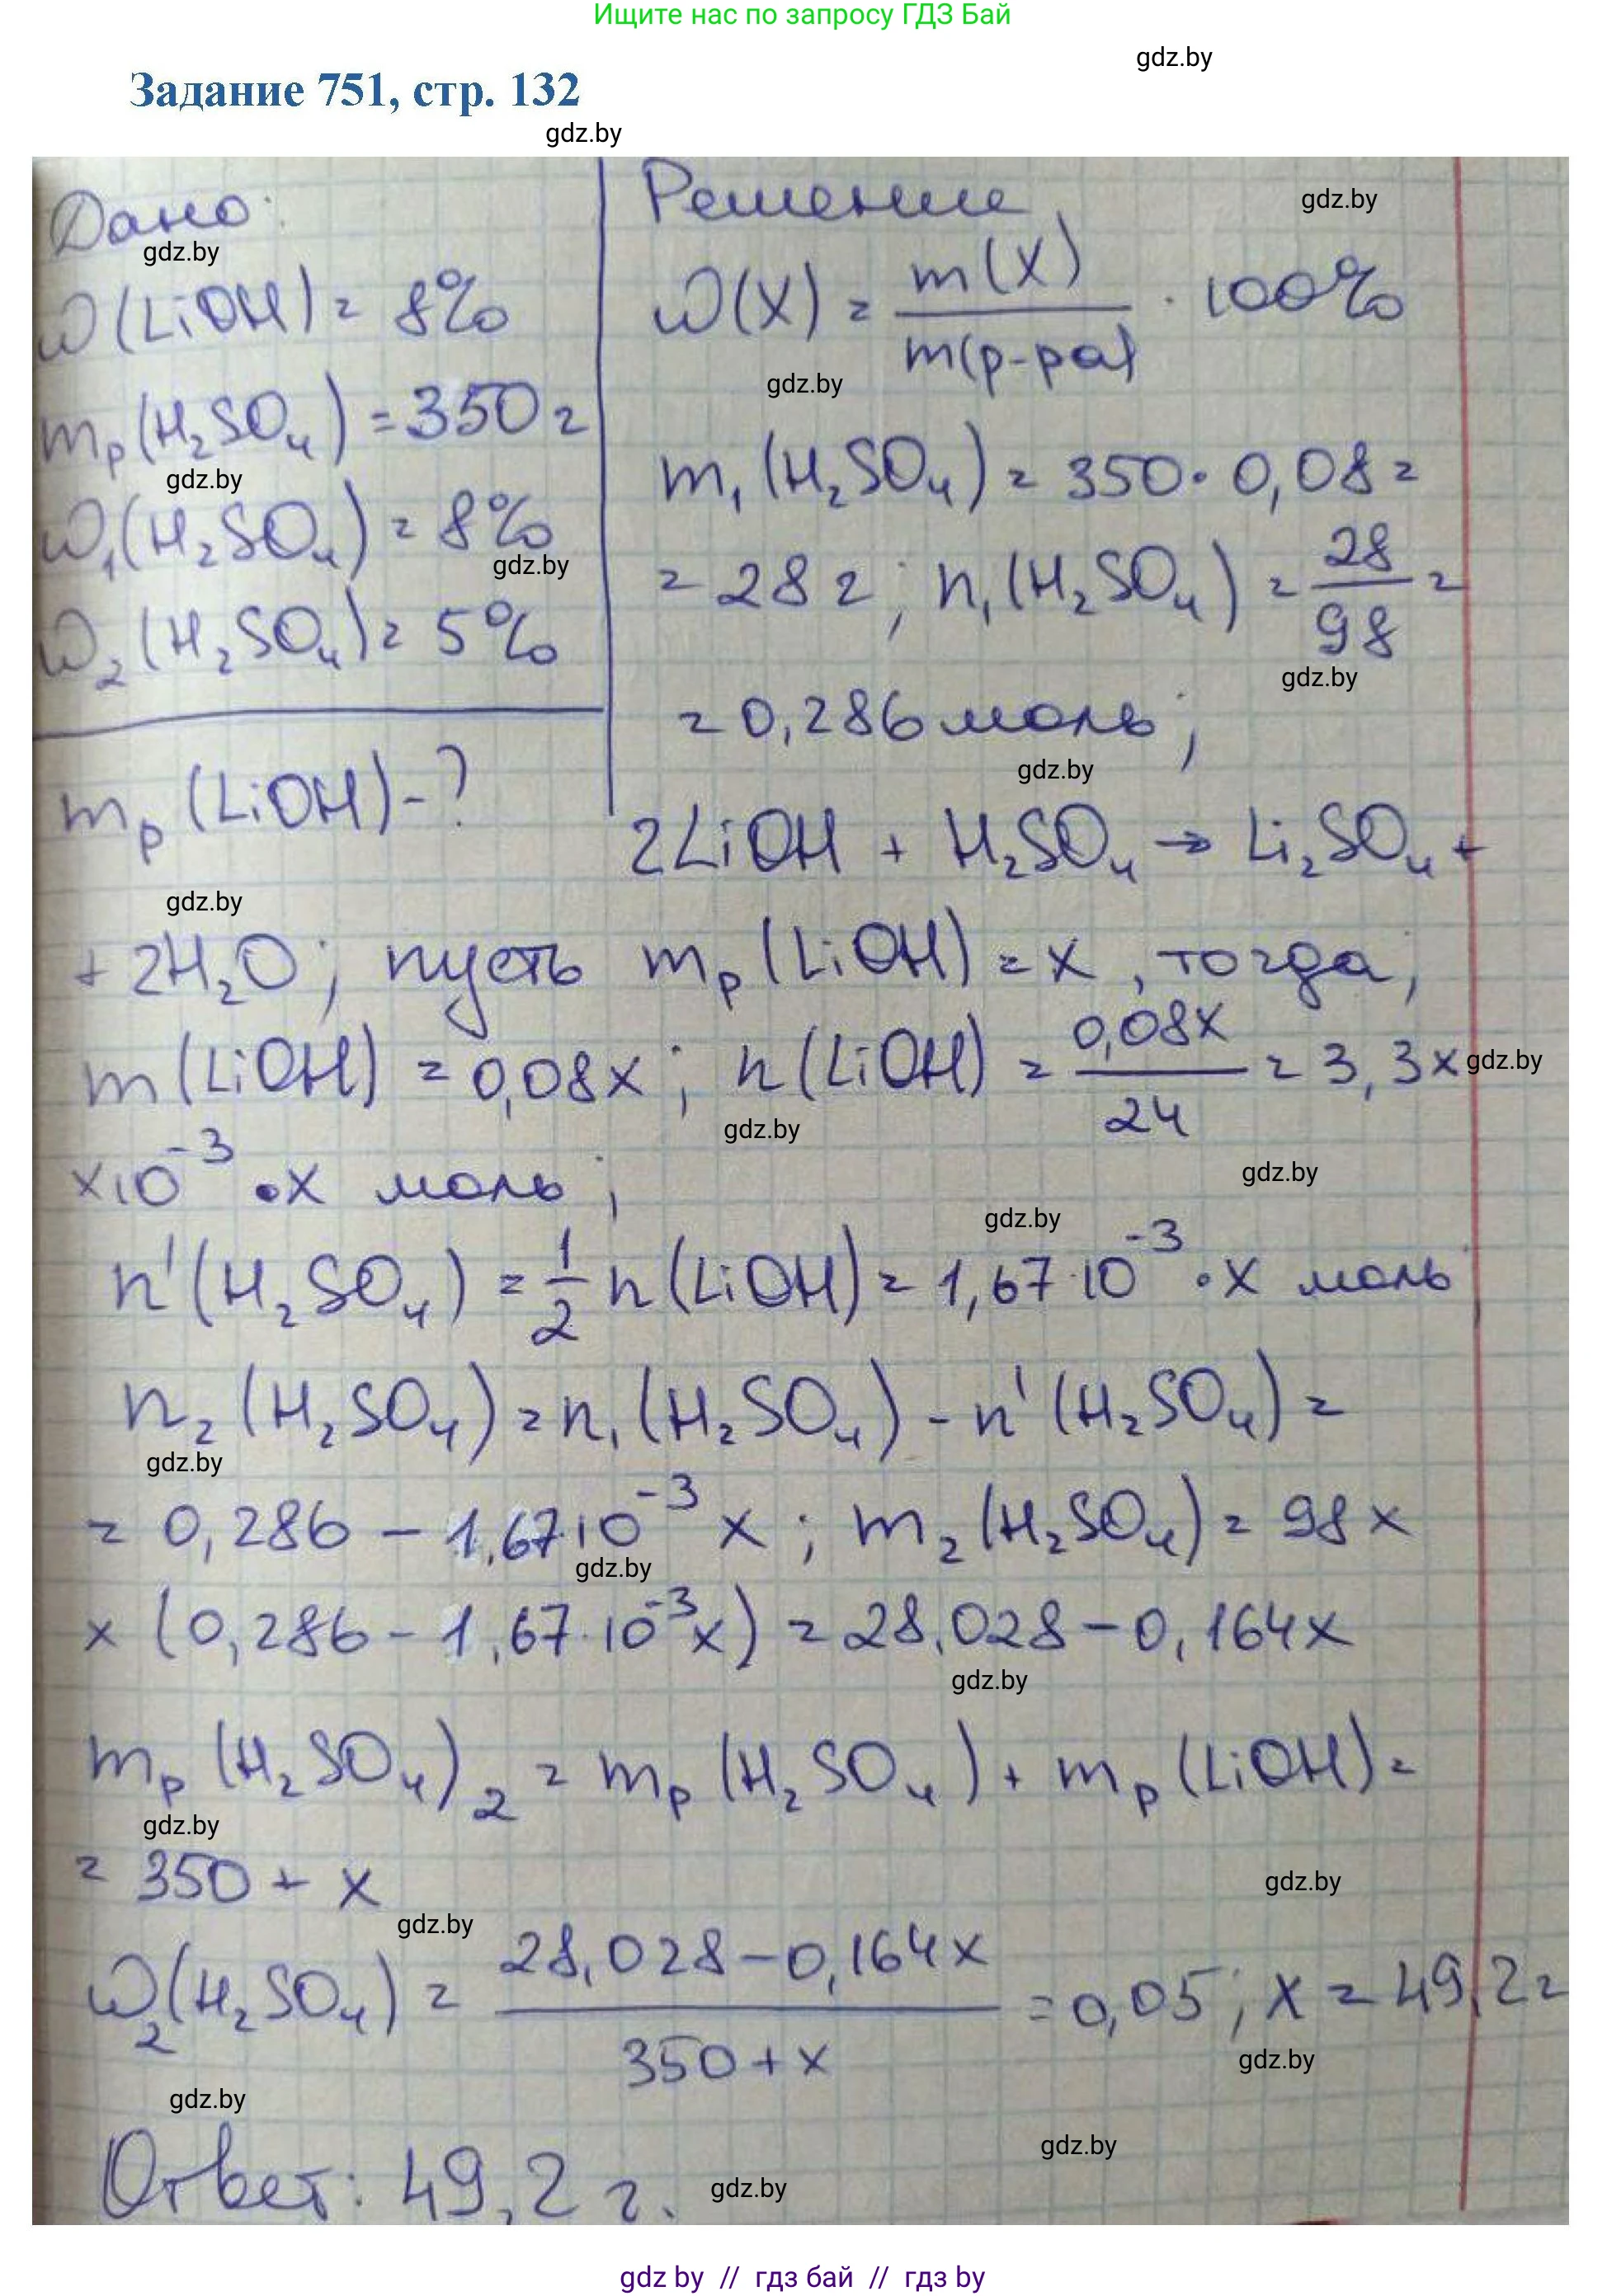 Ищите нас по запросу ГДЗ Бай
gdz.by
Задание 751, стр. 132
gdz.by
Дано:
gdz.by
ω(LiOH) = 8%
mр(H₂SO₄) = 350 г
gdz.by
ω₁(H₂SO₄) = 8%
gdz.by
ω₂(H₂SO₄) = 5%
mр(LiOH) - ?
gdz.by
Решение
gdz.by
ω(X) = m(X) / m(р-ра) · 100%
gdz.by
m₁(H₂SO₄) = 350 · 0,08 =
= 28 г; n₁(H₂SO₄) = 28/98 =
gdz.by
= 0,286 моль;
gdz.by
2LiOH + H₂SO₄ → Li₂SO₄ +
+ 2H₂O; пусть mр(LiOH) = x, тогда;
m(LiOH) = 0,08x; n(LiOH) = 0,08x/24 = 3,3 ×
gdz.by
gdz.by
×10⁻³ · x моль;
gdz.by
gdz.by
n'(H₂SO₄) = 1/2 n(LiOH) = 1,67·10⁻³ · x моль
n₂(H₂SO₄) = n₁(H₂SO₄) - n'(H₂SO₄) =
gdz.by
= 0,286 - 1,67·10⁻³ x; m₂(H₂SO₄) = 98 ×
gdz.by
× (0,286 - 1,67·10⁻³x) = 28,028 - 0,164x
gdz.by
mр(H₂SO₄)₂ = mр(H₂SO₄) + mр(LiOH) =
gdz.by
= 350 + x
gdz.by
gdz.by
ω₂(H₂SO₄) = 28,028 - 0,164x / 350 + x = 0,05; x = 49,2 г
gdz.by
gdz.by
Ответ: 49,2 г.
gdz.by
gdz.by
gdz by // гдз бай // gdz by